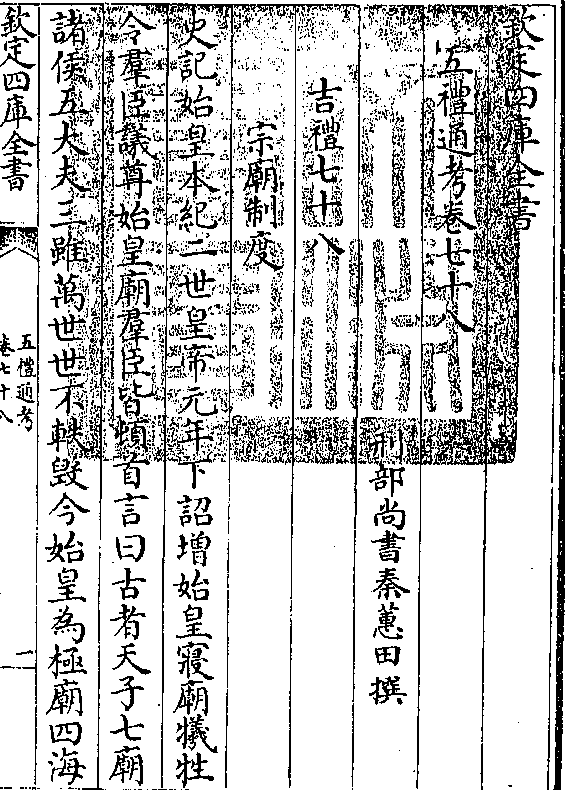 欽定四庫全書
五禮通考卷七十八
刑部尚書秦蕙田撰
吉禮七十八
宗廟制度
史記始皇本紀二世皇帝元年下詔增始皇寢廟犧牲
令羣臣議尊始皇廟羣臣皆頓首言曰古者天子七廟
諸侯五大夫三雖萬世世不軼毀今始皇為極廟四海
欽定四庫全書
五禮通考
卷七十八
一